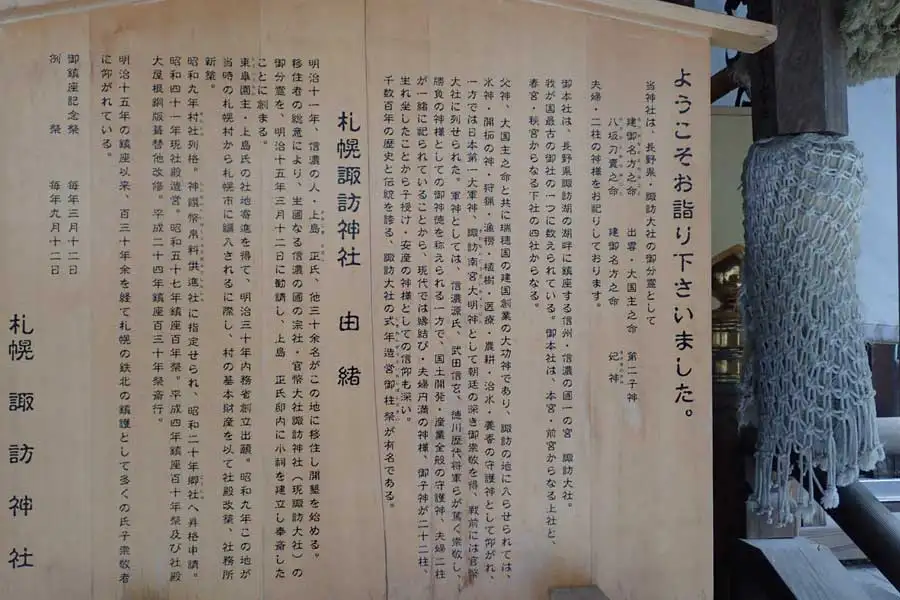 ようこそお詣り下さいました。
当神社は、長野県・諏訪大社の御分霊として
建御名方之命 出雲・大国主之命 第二子神
八坂刀賣之命 建御名方之命 妃神
夫婦・二柱の神様をお記りしております。
御本社は、長野県諏訪湖の湖畔に鎮座する信州・信濃の國一の宮 諏訪大社。
我が国最古の御社の一つに数えられている。御本社は、本宮・前宮からなる上社と、
春宮・秋宮からなる下社の四社からなる。
父神、大国主之命と共に瑞穂国の建国創業の大功神であり、諏訪の地に入らせられては、
水神・開拓の神・狩猟・漁撈・植樹・医療・農耕・治水・養蚕の守護神として仰がれ、
一方では日本第一大軍神、諏訪南宮大明神として朝廷の深き御崇敬を得、戦前には官幣
大社に列せられた。軍神としては、信濃源氏、武田信玄、徳川歴代将軍らが篤く崇敬し、
勝負の神様としての御神徳を称えられる一方で、国土開発・産業全般の守護神、夫婦二柱
が一緒に記られていることから、現代では縁結び・夫婦円満の神様、御子神が二十二柱、
生れ坐したことから子授け・安産の神様としての信仰も深い。
千数百年の歴史と伝統を誇る、諏訪大社の式年造営御柱祭が有名である。
札幌諏訪神社 由緒
明治十一年、信濃の人・上島 正氏、他三十余名がこの地に移住し開墾を始める。
移住者の総意により、生國なる信濃の國の宗社・官幣大社諏訪神社(現諏訪大社)の
御分霊を、明治十五年三月十二日に勧請し、上島 正氏邸内に小祠を建立し奉斎した
ことに創まる。
東皐園主・上島氏の社地寄進を得て、明治三十年内務省創立出願。昭和九年この地が
当時の札幌村から札幌市に編入されるに際し、村の基本財産を以て社殿改築、社務所
新築。
昭和九年村社列格。神饌幣帛料供進社に指定せられ、昭和二十年郷社へ昇格申請。
昭和四十一年現社殿造営。昭和五十七年鎮座百年祭。平成四年鎮座百十年祭及び社殿
大屋根銅版葺替他改修。平成二十四年鎮座百三十年祭斎行。
明治十五年の鎮座以来、百三十年余を経て札幌の鉄北の鎮護として多くの氏子崇敬者
に仰がれている。
御鎮座記念祭 毎年三月十二日
例 祭 毎年九月十二日
札幌諏訪神社